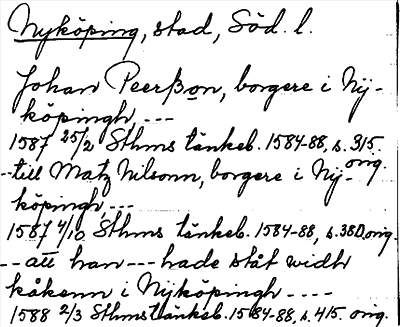 Nyköping, stad, Söd. l.
Johan Peerßon, borgere i Nij-
köpingh, ---
1587 25/2 Sthms tänkeb. 1584-88, s. 315.
orig.
--till Matz Nilsonn, borgere i Nij-
köpingh, ---
1587 4/10 Sthms tänkeb. 1584-88, s. 380. orig.
-- att han --- hade ståt widh
kåkenn i Nijköpingh ----
1588 2/3 Sthms tänkeb. 1584-88, s. 415. orig.